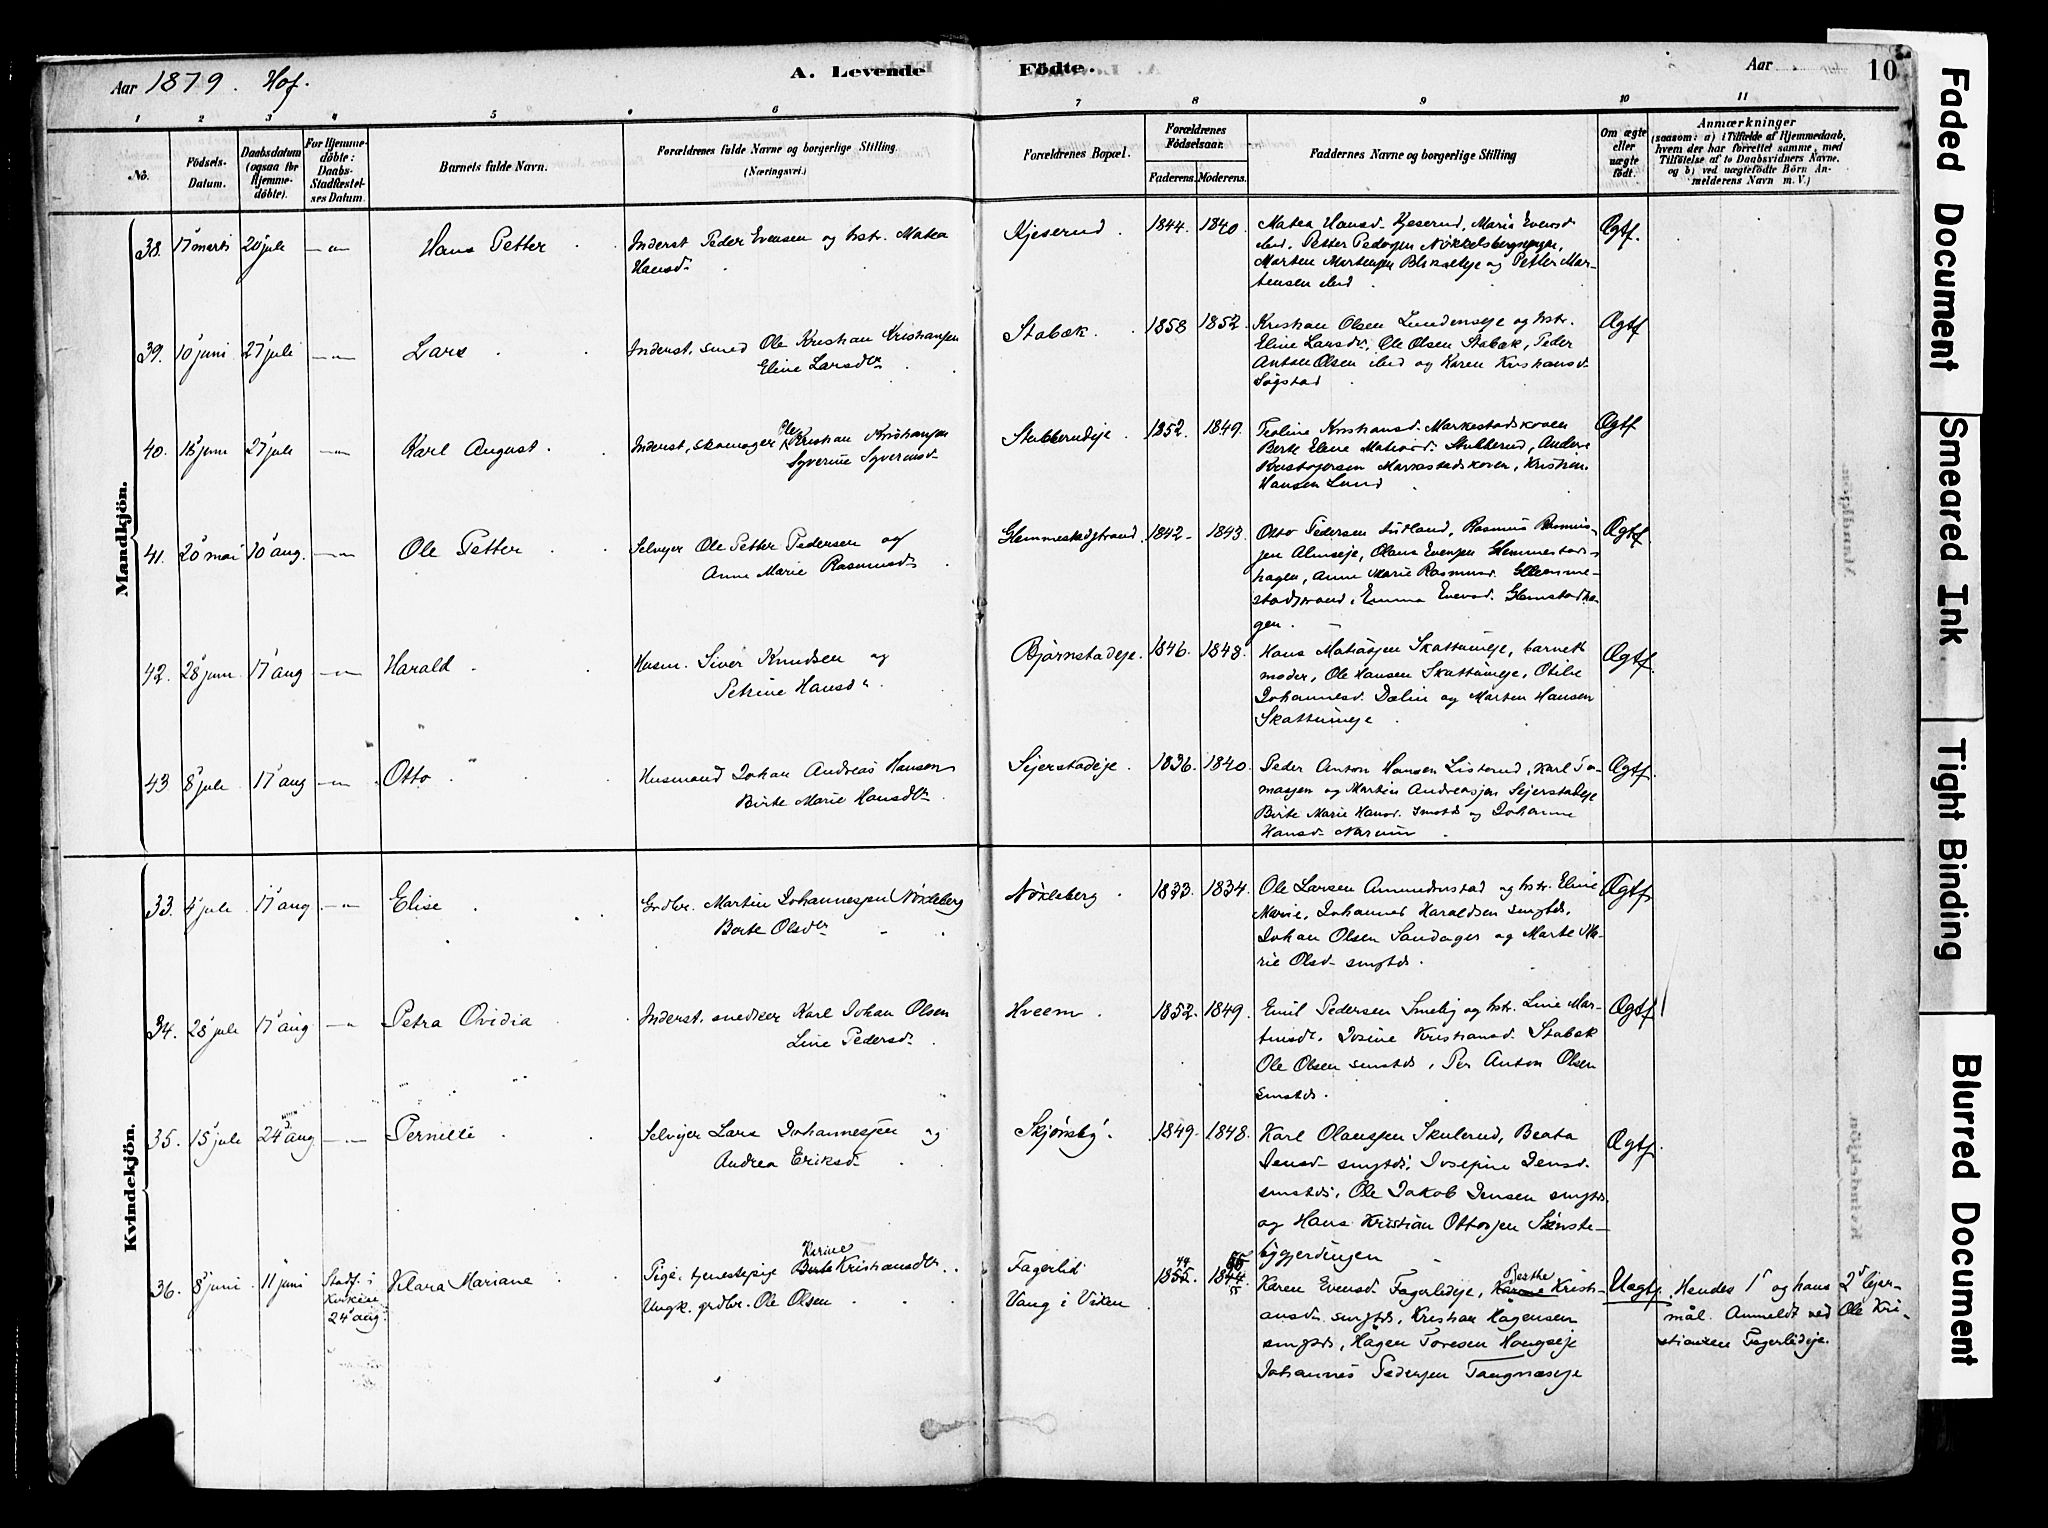 Aar 1879. Hof.
A. Levende Födte.
Aar
10
1 2 3 4 5 6 7 8 9 10 11
No.
Födsels-Datum.
Daabsdatum (ogsaa for Hjemmedöbte).
For Hjemmedöbte: Daabs-Stadfæstelses Datum.
Barnets fulde Navn.
Forældrenes fulde Navne og borgerlige Stilling.
(Næringsvei.)
Forældrenes Bopæl.
Forældrenes Födselsaar.
Faderens. Moderens.
Faddernes Navne og borgerlige Stilling
Om ægte eller uægte födt.
Anmærkninger
(saasom: a) i Tilfælde af Hjemmedaab, hvem der har forrettet samme, med Tilföielse af to Daabsvidners Navne, og b) ved uægtefödte Börn Anmelderens Navn m. V.)
Mandkjön.
38. 17 marts 20 juli Hans Petter
Inderst Peder Evensen og hstr. Matea
Hansd.
Kjeserud. 1844. 1840.
Matea Hansd. Kjeserud, Marie Evensd
ibid, Petter Pedersen Nøkkelsbergseje,
Marten Martensen Blikseteje og Petter Mar-
tensen ibid
Ægtf.
39. 10 juni 27 juli Lars
Inderst, smed Ole Kristian Kristiansen
Eline Larsdr
Stabæk. 1858 1852.
Kristian Olsen Lundenseje og hstr.
Eline Larsdr, Ole Olsen Stabæk, Peder
Anton Olsen ibid og Karen Kristiansd.
Søgstad
Ægtf
40. 16 juni 27 juli Karl August.
Inderst, skomager Ole Kristian Kristiansen
Syverine Syverinsd.
Stubberudeje. 1852. 1849.
Teoline Kristiansd. Markestadskoven
Berte Eline Matiasd. Stubberud, Anders
Kristofersen Markestadskoven, Kristian
Hansen Lund
Ægtf
41. 20 mai 10 aug. Ole Petter
Selvejer Ole Petter Pedersen og
Anne Marie Rasmusd.
Glemmestadstrand. 1842 1843.
Otto Pedersen Rasmus Rasmus-
sen Almseje, Olaus Evensen Glemmestad-
hagen, Anne Marie Rasmusd. Glemme-
stadstrand, Emma Evensd. Glemstadha-
gen.
Ægtf.
42. 28 juni 17 aug Harald
Husm. Siver Knudsen og
Petrine Hansdr.
Bjørnstadeje. 1846. 1848.
Hans Matiasen Skattumeje, barnets
moder, Ole Hansen Skattumeje, Otilie
Johannesd. Dælin og Marten Hansen
Skattumeje
Ægtf.
43. 8 juli 17 aug Otto
Husmand Johan Andreas Hansen
Birte Marie Hansdtr.
Sejerstadeje. 1836. 1840.
Peder Anton Hansen Listerud, Karl To-
masen og Martin Andreassen Sejerstadeje
Birte Marie Hansd. smstds og Johanne
Hansd. Narum
Ægtf.
Kvindekjön.
33. 4 juli 17 aug Elise
Grdbr. Martin Johannesen Nøkleberg
Berte Olsdtr
Nøkleberg 1833. 1834.
Ole Larsen Ammundrustad og hstr. Eline
Marie, Johannes Haraldsen smstds,
Johan Olsen Sandager og Marte Ma-
rie Olsd. smstds.
Ægtf.
34. 28 juli 17 aug Petra Ovidia
Inderst. snedker Karl Johan Olsen
Line Pedersd.
Hveem. 1852. 1849.
Emil Pedersen Smeby og hstr. Line Mar-
tinsdr, Josine Kristiansd. Stabæk
Ole Olsen smstds, Per Anton Olsen
smstds.
Ægtf
35. 15 juli 24 aug. Pernille
Selvejer Lars Johannesen og
Andrea Eriksd.
Skjønsby. 1849. 1848.
Karl Olaussen Skulerud, Beata
Jensd. smstds, Josefine Jensd.
smstds, Ole Jakob Jensen smstds.
og Hans Kristian Ottosen Sønste-
bygjerdingen
Ægtf.
36. 8 juni 11 juni Stadf. i
Kirken
24 aug. Klara Mariane
Pige, tjenestepige Berte Karine Kristiansdtr.
Ungk. grdbr. Ole Olsen
Fagerlid
Vang i Viken
1855. 44
1844 55
Karen Evensd. Fagerlideje, Karine Berthe Kristi-
ansdr. smstds, Kristian Hågensen
smstds, Hågen Toresen Hongseje
Johannes Pedersen Tangnæseje
Uægtf.
Hendes 1ste og hans 2det lejer-
mål. Anmeldt ved Ole Kri-
stiansen Fagerlideje.
Faded Document
Smeared Ink
Tight Binding
Blurred Document